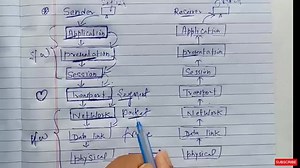 Sender Receiver
Application Application
S/w presentation presentation
Session Session
Transport Segment Transport
Network Packet Network
H/w Data link frame Data link
physical physical
SUBSCRIBE